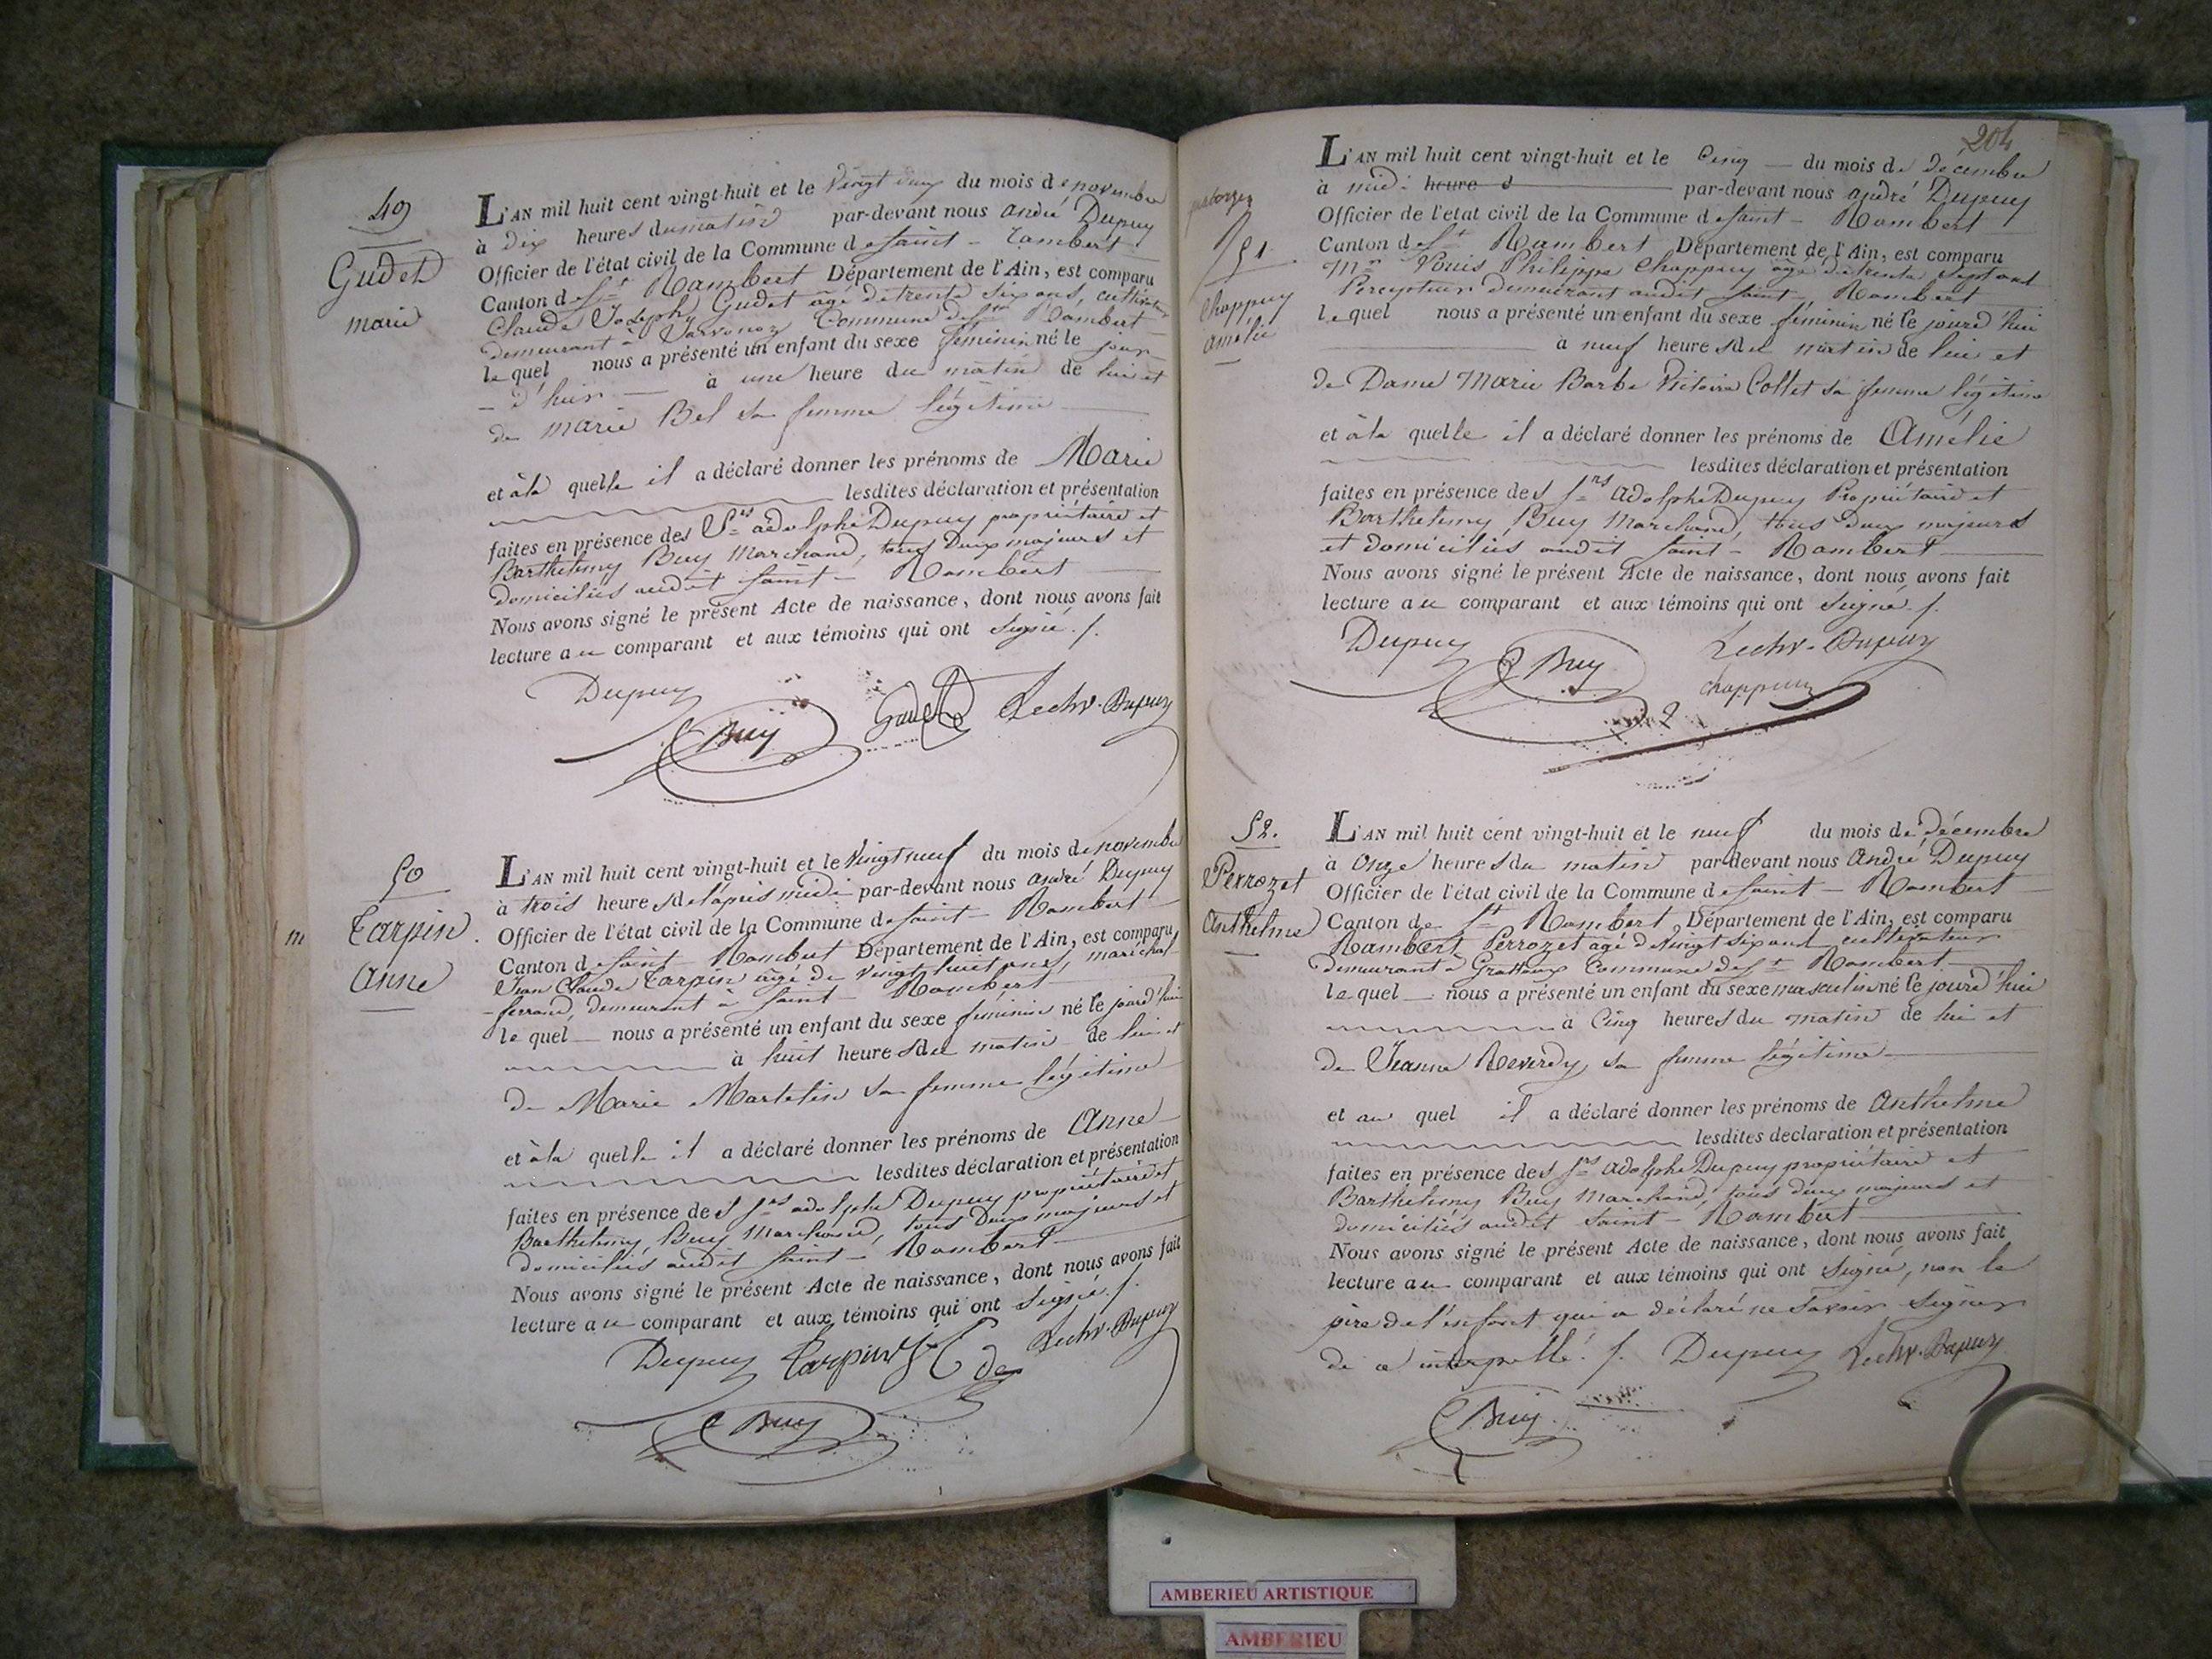 49
Gudet
marie
L'AN mil huit cent vingt-huit et le vingt deux du mois de novembre
à dix heures du matin par-devant nous andré Dupuy
Officier de l'état civil de la Commune de saint-rambert
Canton de St Rambert Département de l'Ain, est comparu
Claude Joseph Gudet âgé de trente six ans, cultivateur
demeurant à Commune de St Rambert
lequel nous a présenté un enfant du sexe féminin né le jour
d'hier à une heure du matin de lui et
de marie Bel sa femme légitime
et à la quelle il a déclaré donner les prénoms de Marie
lesdites déclaration et présentation
faites en présence des Srs adolphe Dupuy propriétaire et
Barthelemy Buy Marchand, tous deux majeurs et
domiciliés audit saint-Rambert
Nous avons signé le présent Acte de naissance, dont nous avons fait
lecture au comparant et aux témoins qui ont signé.
Dupuy
Buy
50
m
Tarpin
Anne
L'AN mil huit cent vingt-huit et le vingt neuf du mois de novembre
à trois heures de l'après midi par-devant nous andré Dupuy
Officier de l'état civil de la Commune de saint-Rambert
Canton de saint-Rambert Département de l'Ain, est comparu
Jean Claude Tarpin âgé de vingt huit ans, maréchal-
-ferrand, demeurant à saint-Rambert
lequel nous a présenté un enfant du sexe féminin né le jourd'hui
à huit heures du matin de lui et
de Marie Martelin sa femme légitime
et à la quelle il a déclaré donner les prénoms de Anne
lesdites déclaration et présentation
faites en présence des Srs adolphe Dupuy propriétaire et
Barthelemy Buy Marchand, tous deux majeurs et
domiciliés audit saint-Rambert
Nous avons signé le présent Acte de naissance, dont nous avons fait
lecture au comparant et aux témoins qui ont signé.
Dupuy Tarpin
Buy
204
51
Chappuy
amélie
L'AN mil huit cent vingt-huit et le cinq du mois de décembre
à midi heure s par-devant nous andré Dupuy
Officier de l'etat civil de la Commune de saint-Rambert
Canton de St Rambert Département de l'Ain, est comparu
Mr Louis Philippe Chappuy âgé de trente sept ans
Percepteur demeurant audit saint-Rambert
lequel nous a présenté un enfant du sexe féminin né le jourd'hui
à neuf heures du matin de lui et
de Dame Marie Barbe Victoire Collet sa femme légitime
et à la quelle il a déclaré donner les prénoms de Amélie
lesdites déclaration et présentation
faites en présence des Srs adolphe Dupuy Propriétaire et
Barthelemy Buy Marchand, tous deux majeurs
et domiciliés audit saint-Rambert
Nous avons signé le présent Acte de naissance, dont nous avons fait
lecture au comparant et aux témoins qui ont signé.
Dupuy
Buy
Chappuy
52.
Perrozet
Anthelme
L'AN mil huit cent vingt-huit et le neuf du mois de décembre
à onze heures du matin par-devant nous André Dupuy
Officier de l'état civil de la Commune de saint-Rambert
Canton de St Rambert Département de l'Ain, est comparu
Rambert Perrozet agé de vingt six ans cultivateur
demeurant à Grattoux Commune de St Rambert
lequel nous a présenté un enfant du sexe masculin né le jourd'hui
à cinq heures du matin de lui et
de Jeanne Reverdy sa femme légitime
et au quel il a déclaré donner les prénoms de Anthelme
lesdites declaration et présentation
faites en présence des Srs adolphe Dupuy propriétaire et
Barthelemy Buy Marchand, tous deux majeurs et
domiciliés audit saint-Rambert
Nous avons signé le présent Acte de naissance, dont nous avons fait
lecture au comparant et aux témoins qui ont signé, non le
père de l'enfant qui a déclaré ne savoir signer
de ce interpellé. Dupuy
Buy
AMBERIEU ARTISTIQUE
AMBERIEU